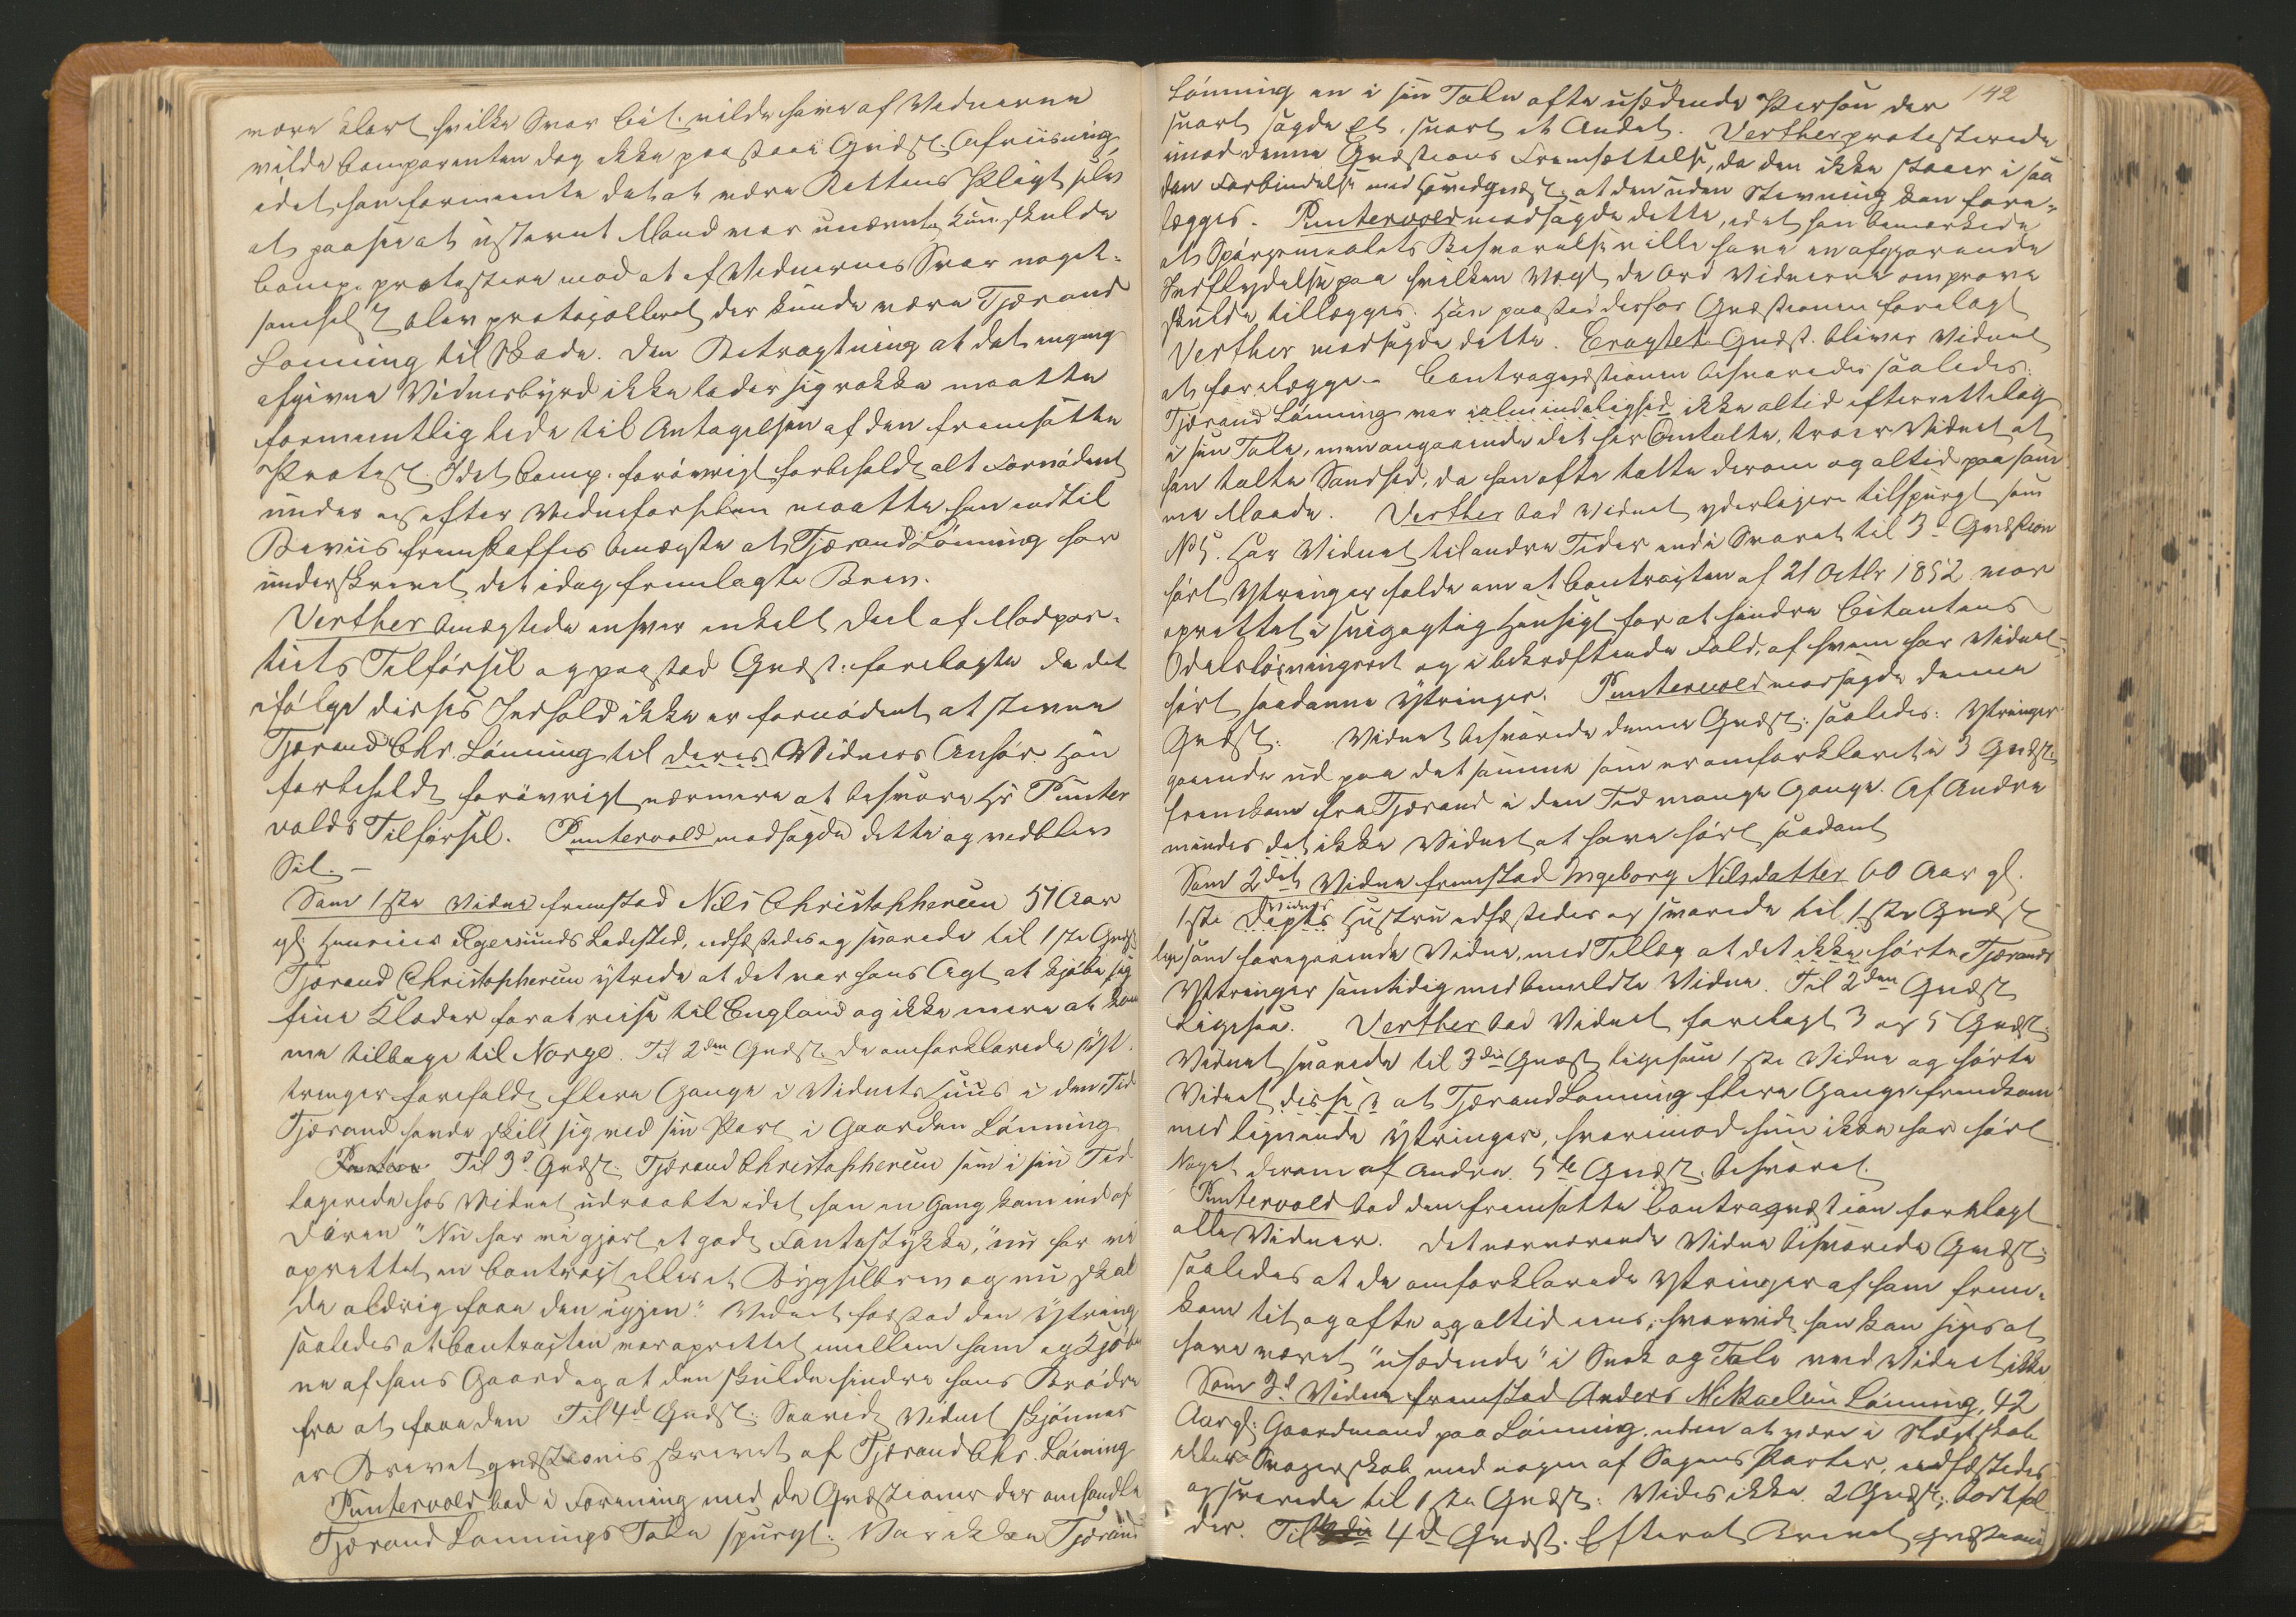 være klart hvilke Svar Cit. vilde have af Vidnerne
vilde Comparenten dog ikke paastaae Qvæst. Afviisning,
idet han formeente det at være Rettens Pligt selv
at paasee at ustevnt Mand var unævnt, kun skulde
Comp. protestere mod at af Vidnernes Svar noget-
somhelst blev protocolleret der kunde være Tjærand
Lønning til Skade. Den Betragtning at det engang
afgivne Vidnesbyrd ikke lader sig rokke maatte
formeentlig lede til Antagelsen af den fremsatte
Protest. Idet Comp. forøvrigt forbeholdt alt Fornødent
under og efter Vidneførselen maatte han indtil
Beviis fremskaffes benægte at Tjærand Lønning har
underskrevet det idag fremlagte Brev.
Verther benægtede enhver enkelt Deel af Modpar-
tiets Tilførsel og paastod Qvæst. forelagte da det
ifølge disses Indhold ikke er fornødent at stevne
Tjærand Chr. Lønning til deres Vidners Anhør. Han
forbeholdt forøvrigt nærmere at besvare Hr Punter
volds Tilførsel. Puntervold modsagde dette og vedblev
Sit. –
Som 1ste Vidne fremstod Nils Christophersen 51 Aar
gl. Huuseier Egersunds Ladested, edfæstedes og svarede til 1ste Qvæst
Tjærand Christophersen ytrede at det var hans Agt at kjøbe sig
fine Klæder for at reise til England og ikke mere at kom
me tilbage til Norge. Til 2den Qvæst. De omforklarede Yt
tringer forefaldt flere Gange i Vidnets Huus i den Tid
Tjærand havde skilt sig ved sin Part i Gaarden Lønning
Til 3d Qvæst. Tjærand Christophersen som i sin Tid
logerede hos Vidnet udraabte idet han en Gang kom ind af
Døren "Nu har vi gjort et godt Fantestykke," "nu har vi
oprettet en Contract eller et Bygselbrev og nu skal
de aldrig faae den igjen." Vidnet forstod den Yttring
saaledes at Contracten var oprettet mellem ham og Kjøbe
ne af hans Gaard og at den skulde hindre hans Brødre
fra at faae den Til 4d Qvæst: Saavidt Vidnet skjønner
er Brevet qvæstionis skrevet af Tjærand Chr. Lønning
Puntervold bad i Forening med de Qvæstioner der omhandle
Tjærand Lønnings Tale spurgt: Var ikke Tjærand
142
Lønning en i sin Tale ofte usædende Person der
snart sagde Et, snart et Andet. Verther protesterede
imod denne Qvæstions Fremsættelse, da den ikke staaer i saa
dan Forbindelse med Hovedqvæst. at den uden Stevning kan fore-
lægges. Puntervold modsagde dette, idet han bemærkede
at Spørgsmaalets Besvarelse ville have en afgjørende
Indflydelse paa hvilken Vægt de Ord Vidnerne omprove
skulde tillægges. Han paastod derfor Qvæstionen forelagt
Verther modsagde dette. Eragtet Qvæst. bliver Vidnet
at forelægge. – Contraqvæstionen besvaredes saaledes:
Tjærand Lønning var i almindelighed ikke altid efterrettelig
i sin Tale, men angaaende det her Omtalte, troer Vidnet at
han talte Sandhed, da han ofte talte derom og altid paa sam
me Maade. Verther bad Vidnet yderligere tilspurgt som
No 5. Har Vidnet til andre Tider end i Svaret til 3d Qvæstion
hørt Ytringer falde om at Contracten af 21 Octbr 1852 var
oprettet i svigagtig Hensigt for at hindre Citantens
Odelsløsningsret og i bekræftende Fald, af hvem har Vidnet
hørt saadanne Ytringer. Puntervold modsagde denne
Qvæst. Vidnet besvarede denne Qvæst. saaledes: Ytringer
gaaende ud paa det samme som er omforklaret i 3 Qvæst.
fremkom fra Tjærand i den Tid mange Gange. Af Andre
mindes det ikke Vidnet at have hørt saadant
Som 2det Vidne fremstod Ingeborg Nilsdatter 60 Aar gl.
1ste Depts Vidnes Hustru edfæstedes og svarede til 1ste Qvæst
ligesom foregaaende Vidne, med Tillæg at det ikke hørte Tjærands
Yttringer samtidig med bemeldte Vidne. Til 2den Qvæst
Ligesaa. Verther bad Vidnet forelagt 3 og 5 Qvæst.
Vidnet svarede til 3die Qvæst ligesom 1ste Vidne og hørte
Vidnet at Tjærand Lønning flere Gange fremkom
med lignende Ytringer, hvorimod hun ikke har hørt
Noget derom af Andre. 5te Qvæst. besvaret.
Puntervold bad den fremsatte Contraqvæstion forelagt
alle Vidner. Det nærværende Vidne besvarede Qvæst.
saaledes at de omforklarede Ytringer af ham frem-
kom tit og ofte og altid eens; hvorvidt han kan siges at
have været "usædende" i Snak og Tale veed Vidnet ikke
Som 3d Vidne fremstod Anders Mikaelsen Lønning, 42
Aar gl. Gaardmand paa Lønning, uden at være i Slægtskab
eller Svogerskab med nogen af Sagens Parter, edfæstedes
og svarede til 1ste Qvæst: Vides ikke. 2 Qvæst. bortfal
der. Til 4d Qvæst. Efterat Brevet qvæstionis